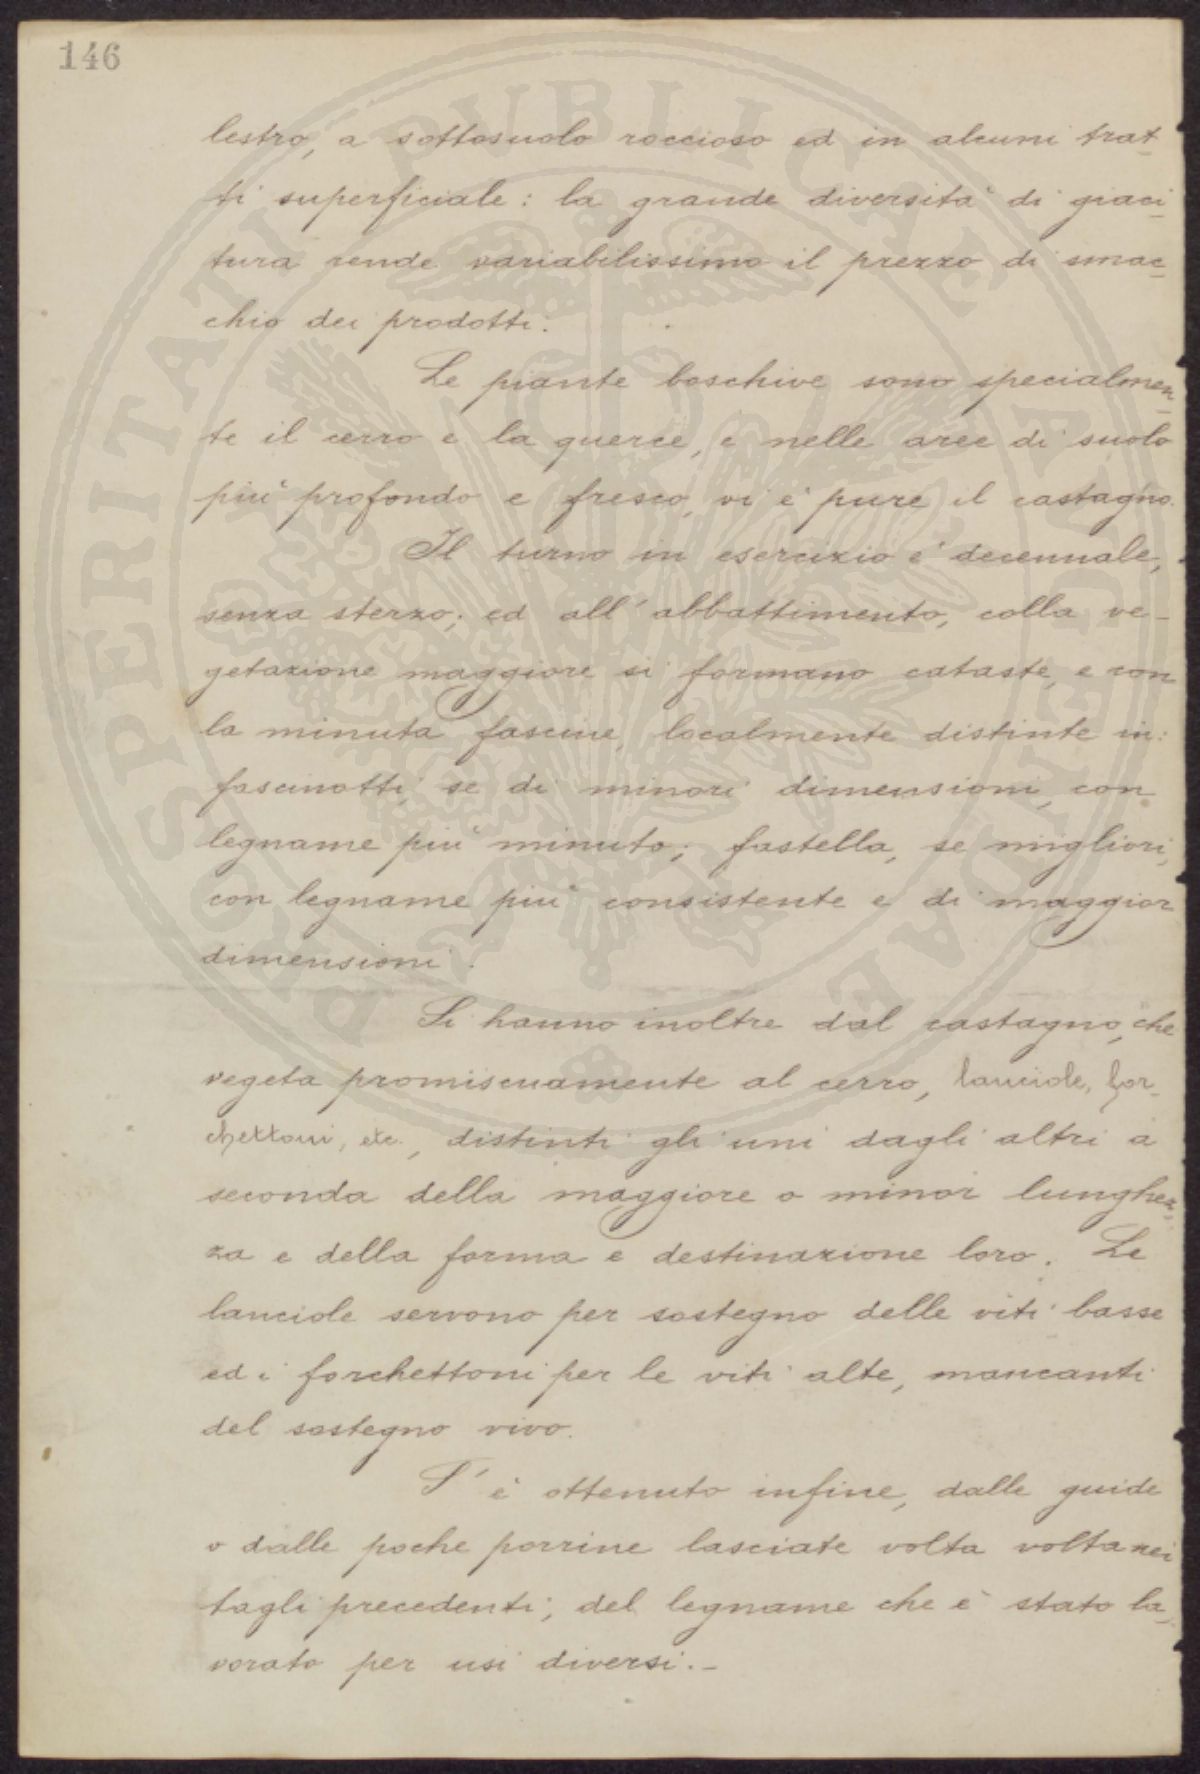 146
lestro, a sottosuolo roccioso ed in alcuni trat-
ti superficiale: la grande diversità di giaci-
tura rende variabilissimo il prezzo di smac-
chio dei prodotti.
Le piante boschive sono specialmen-
te il cerro e la querce, e nelle aree di suolo
più profondo e fresco, vi è pure il castagno.
Il turno in esercizio è decennale,
senza sterzo; ed all'abbattimento, colla ve-
getazione maggiore si formano cataste, e con
la minuta fascine, localmente distinte in:
fascinotti, se di minori dimensioni, con
legname più minuto; fastella, se migliori,
con legname più consistente e di maggior
dimensioni.
Si hanno inoltre dal castagno, che
vegeta promiscuamente al cerro, lanciole, for-
chettoni, etc., distinti gli uni dagli altri a
seconda della maggiore o minor lunghez-
za e della forma e destinazione loro. Le
lanciole servono per sostegno delle viti basse
ed i forchettoni per le viti alte, mancanti
del sostegno vivo.
S'è ottenuto infine, dalle guide
o dalle poche porrine lasciate volta volta nei
tagli precedenti, del legname che è stato la-
vorato per usi diversi.-
PROSPERITATI PUBLICAE AUGENDAE